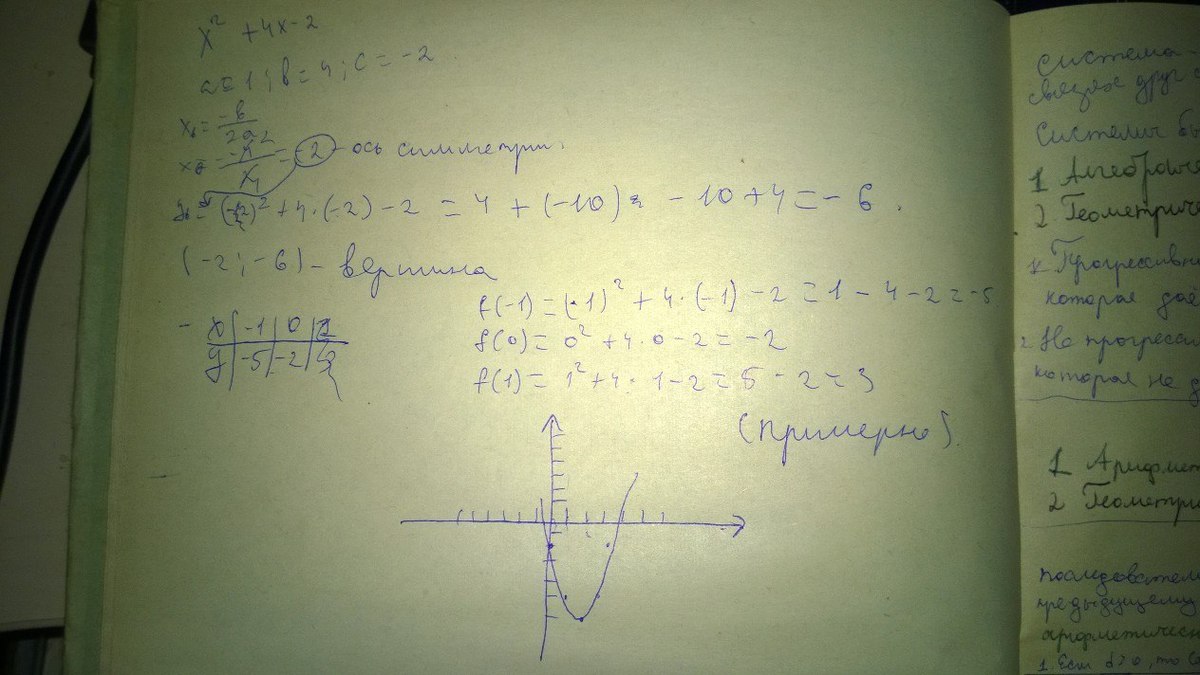 x² + 4x - 2
a = 1; b = 4; c = -2
xв = -b / 2a
= -2 - ось симметрии.
+ 4·(-2) - 2 = 4 + (-10) = -10 + 4 = -6.
(-2; -6) - вершина
f(-1) = (-1)² + 4·(-1) - 2 = 1 - 4 - 2 = -5
f(0) = 0² + 4·0 - 2 = -2
f(1) = 1² + 4·1 - 2 = 5 - 2 = 3
x | -1 | 0 |
y | -5 | -2 |
(примерно).
Система -
связях друг
1 Алгебраиче
2. Геометриче
Прогрессивн
которая даё
2 Не прогресси
которая не д
1 Арифмет
2 Геометри
последовател
предыдущему
арифметическ
1. Если d>0, то